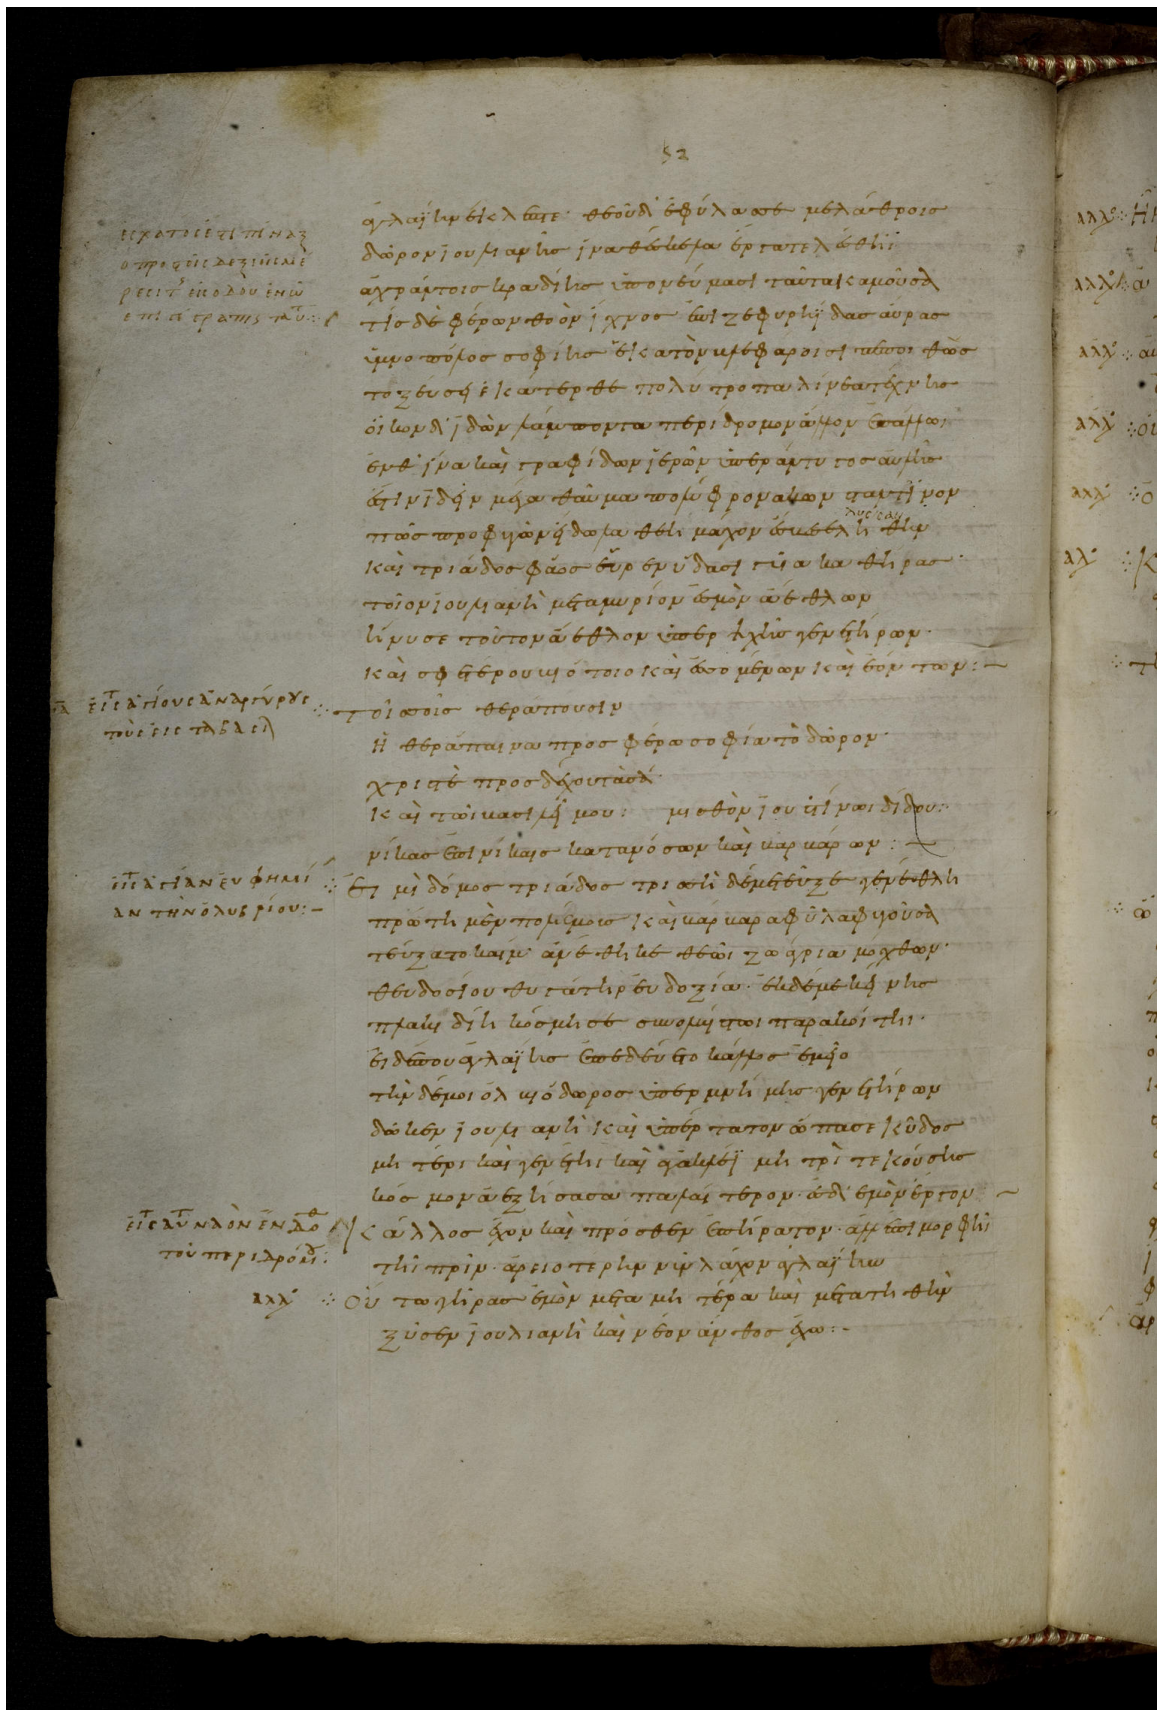 52
ἀγλαΐην ἔκλεπτε· θεοῦ δ' ἐφύλασσε μελάθροις
δῶρον ἰουλιανῆς ἵνα θέσκελα ἔργα τελέσθηι
ἀχράντοις κραδίης ὑπονεύμασι ταῦτα καμοῦσα
τίς δὲ φέρων θοὸν ἴχνος ἐπὶ ζεφυρηΐδας αὔρας
ὑμνοπόλος σοφίης ἑκατὸν βλεφάροισι πεποιθὼς
τοξεύσει ἑκάτερθε πολύτροπα τέχνης
οἶκον δ' ἰδὼν λάμποντα περίδρομον ἄλλον ἐπάλλωι
ἔνθ' ἵνα καὶ γραφίδων ἱερῶν ὑπὲρ ἄντυγος αὐλῆς
ἔστιν ἰδεῖν μέγα θαῦμα πολύφρονα κωνσταντῖνον
πῶς προφυγὼν εἴδωλα θεημάχον ἔσβεσε
λύσσαν
καὶ τριάδος φάος εὗρεν ὕδασι γυῖα καθήρας·
τοῖον ἰουλιανὴ μετὰ μυρίον ἑσμὸν ἀέθλων
ἤνυσε τοῦτον ἄεθλον ὑπὲρ ψυχῆς γενετήρων·
καὶ σφετέρου βιότοιο καὶ ἐσσομένων καὶ ἐόντων:~
εἰς ἁγίους ἀναργύρους
τοὺς εἰς τὰ βασιλ
τοῖς σοῖς θεράπουσιν
ἡ θεράπαινα προσφέρω σοφία τὸ δῶρον·
χριστὲ προσδέχου τὰ σά·
καὶ τῶι βασιλεῖ μου: μισθὸν ἰουστίνωι δίδου:
νίκας ἐπὶ νίκαις κατὰ νόσων καὶ βαρβάρων:~
εἰς ἁγίαν εὐφημί
αν τὴν ὀλυβρίου:–
εἰμὶ δόμος τριάδος τρισσὴ δέ με τεῦξε γενέθλη
πρώτη μὲν πολέμοις καὶ βάρβαρα φῦλα φυγοῦσα
τεύξατο καί μ' ἀνέθηκε θεῶι ζωάγρια μόχθων·
θευδοσίου θυγάτηρ εὐδοξία· ἐκ δέ με κείνης
πλακιδίη κόσμησε σὺν ὀλβίστωι παρακοίτηι·
εἰ δέ που ἀγλαΐης ἐπεδεύετο κάλλος ἐμεῖο
τὴν δέ μοι ὀλβιόδωρος ὑπὲρ μνήμης γενετήρων
δῶκεν ἰουλιανὴ καὶ ὑπέρτατον ὤπασε κῦδος
μητέρι καὶ γενέτηι καὶ ἀγακλέϊ μητρὶ τεκούσης
κόσμον ἀεξήσασα παλαίτερον· ὧδ' ἐμὸν ἔργον ~
εἰς τὸν αὐτὸν ναὸν ἔνδοθεν
τοῦ περιδρόμου:
κάλλος ἔχον καὶ πρόσθεν ἐπήρατον· ἀλλ' ἐπὶ μορφῆι
τῆι πρὶν· ἀρειοτέρην νῦν λάχον ἀγλαΐην
ἄλλο
οὕτω γῆρας ἐμὸν μετὰ μητέρα καὶ μετὰ τηθὴν
ξῦσεν ἰουλιανὴ καὶ νέον ἄνθος ἔχω:–